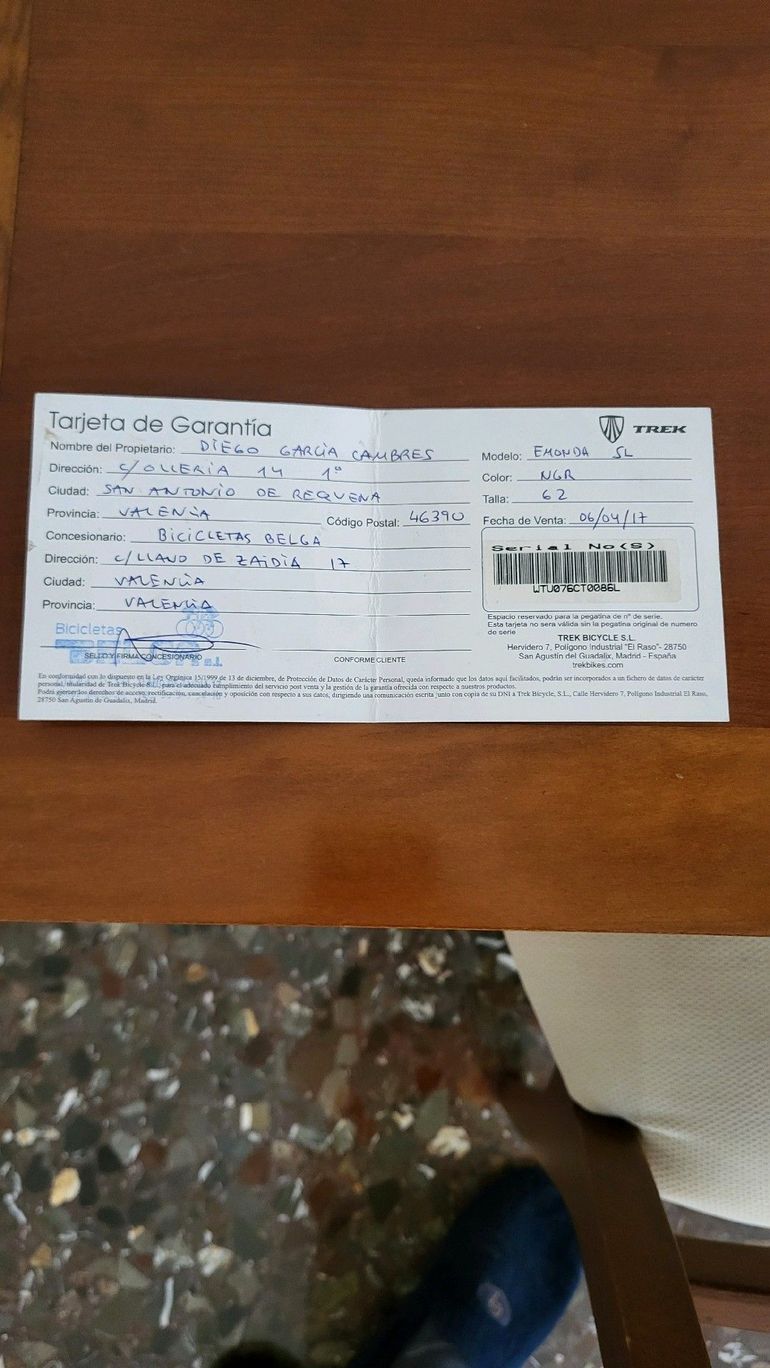 Tarjeta de Garantía
Nombre del Propietario: DIEGO GARCÌA CAMBRES
Dirección: C/OLLERIA 14 1º
Ciudad: SAN ANTONIO DE REQUENA
Provincia: VALENCIA
Código Postal: 46390
Concesionario: BICICLETAS BELGA
Dirección: C/LLANO DE ZAIDIA 17
Ciudad: VALENCIA
Provincia: VALENCIA
Bicicletas
SELLO Y FIRMA CONCESIONARIO
CONFORME CLIENTE
TREK
Modelo: EMONDA SL
Color: NGR
Talla: 62
Fecha de Venta: 06/04/17
Serial No(S)
WTU076CT0086L
Espacio reservado para la pegatina de nº de serie.
Esta tarjeta no sera válida sin la pegatina original de numero
de serie
TREK BICYCLE S.L.
Hervidero 7, Polígono Industrial "El Raso"- 28750
San Agustín del Guadalix, Madrid - España
trekbikes.com
En conformidad con lo dispuesto en la Ley Orgánica 15/1999 de 13 de diciembre, de Protección de Datos de Carácter Personal, queda informado que los datos aquí facilitados, podrán ser incorporados a un fichero de datos de carácter
personal, titularidad de Trek Bicycle S.L., para el adecuado cumplimiento del servicio post venta y la gestión de la garantía ofrecida con respecto a nuestros productos.
Podrá ejercer los derechos de acceso, rectificación, cancelación y oposición con respecto a sus datos, dirigiendo una comunicación escrita junto con copia de su DNI a Trek Bicycle, S.L., Calle Hervidero 7, Polígono Industrial El Raso,
28750 San Agustín de Guadalix, Madrid.